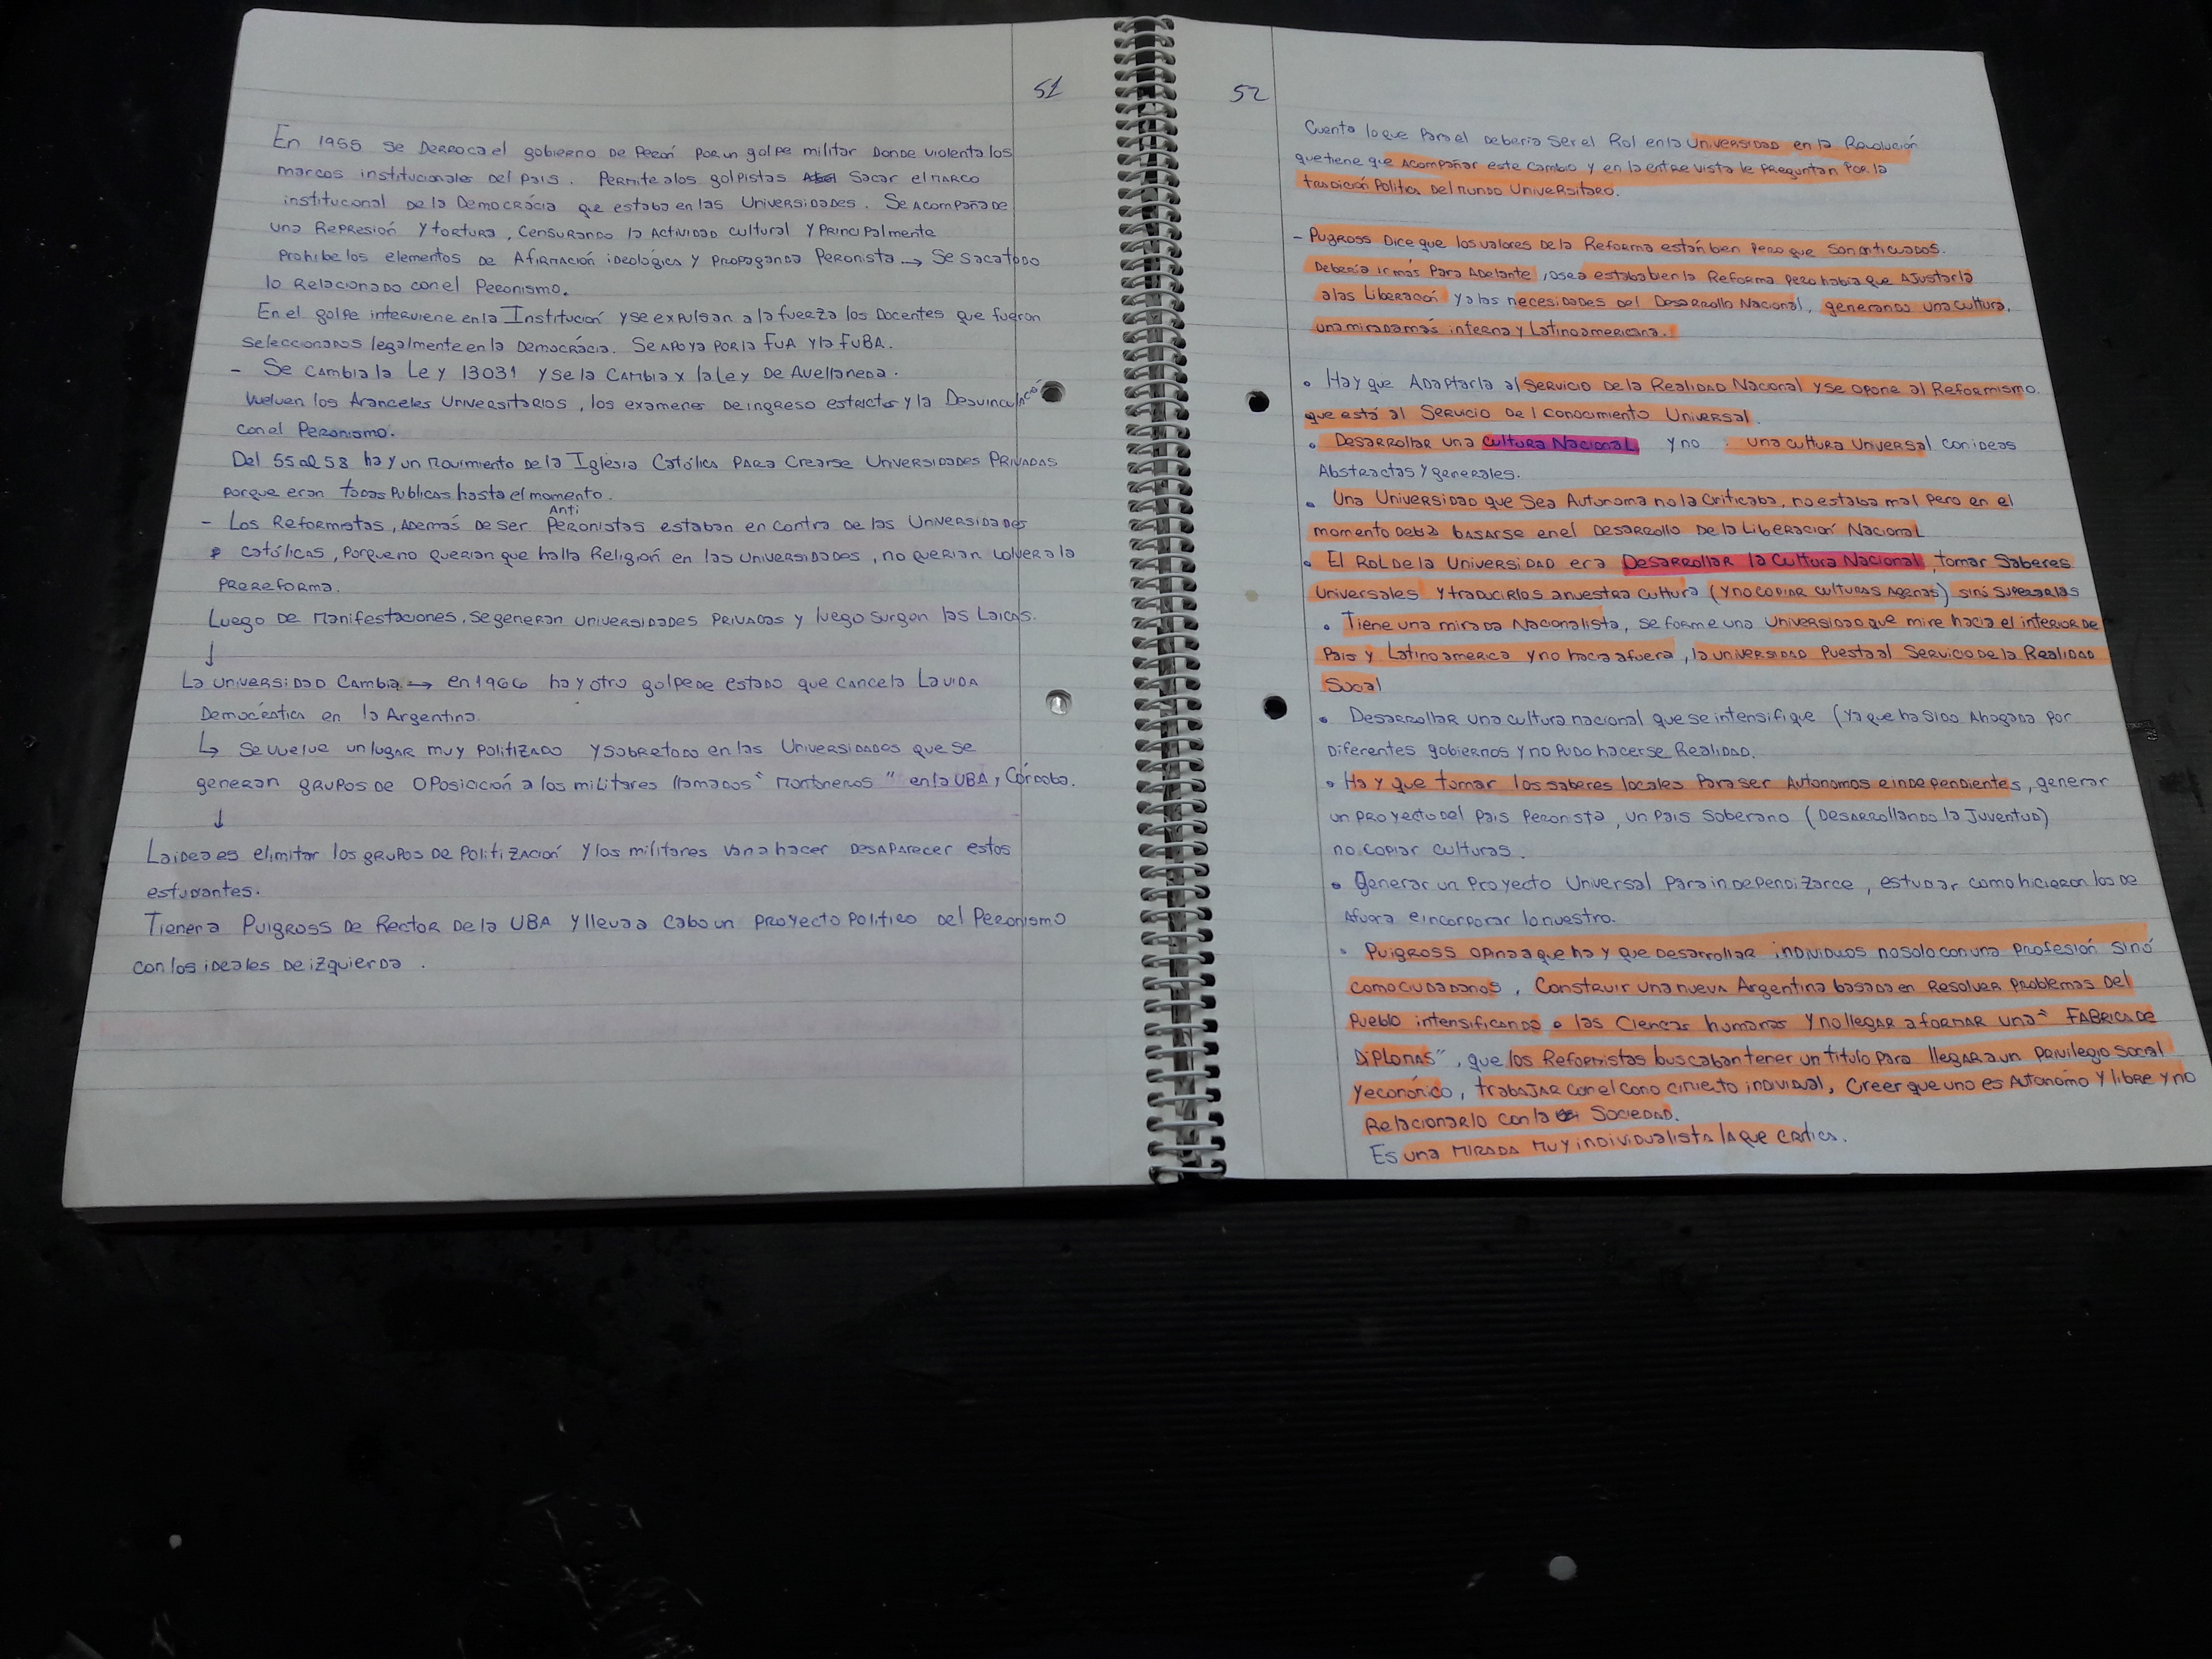 51
En 1955 se Derroca el gobierno de Perón por un golpe militar donde violenta los
marcos institucionales del país. Permite a los golpistas sacar el marco
institucional de la Democrácia que estaba en las Universidades. Se acompaña de
una Represión y tortura, censurando la Actividad cultural y principalmente
prohibe los elementos de Afirmación ideológica y propaganda Peronista → Se saca todo
lo Relacionado con el Peronismo.
En el golpe interviene en la Institución y se expulsan a la fuerza los Docentes que fueron
seleccionados legalmente en la Democrácia. Se apoya por la FUA y la FUBA.
- Se cambia la Ley 13031 y se la cambia x la Ley de Avellaneda.
Vuelven los Aranceles Universitarios, los examenes de ingreso estrictos y la Desvinculación
con el Peronismo.
Del 55 al 58 hay un movimiento de la Iglesia Católica para crearse Universidades Privadas
porque eran todas Publicas hasta el momento.
Anti
- Los Reformistas, además de ser Peronistas estaban en contra de las Universidades
católicas, porque no querian que halla Religión en las universidades, no querian volver a la
prereforma.
Luego de manifestaciones, se generan universidades privadas y luego surgen las Laicas.
↓
La universidad cambia → en 1966 hay otro golpe de estado que cancela la vida
Democrática en la Argentina.
↳ Se vuelve un lugar muy politizado y sobretodo en las Universidades que se
generan grupos de oposición a los militares llamados "montoneros" en la UBA, Córdoba.
↓
La idea es elimitar los grupos de politización y los militares van a hacer desaparecer estos
estudiantes.
Tienen a Puigross de Rector de la UBA y lleva a cabo un proyecto politico del Peronismo
con los ideales de izquierda.
52
Cuenta lo que para el deberia ser el Rol en la Universidad en la Revolución
que tiene que acompañar este cambio y en la entrevista le preguntan por la
tradición Politica del mundo Universitaro.
- Puigross Dice que los valores de la Reforma están bien pero que son anticuados.
Debería ir más para adelante, osea estaba bien la Reforma pero habia que Ajustarla
a las Liberación y a las necesidades del Desarrollo Nacional, generando una cultura,
una mirada más interna y Latinoamericana.
• Hay que Adaptarla al servicio de la Realidad Nacional y se opone al Reformismo
que está al servicio del conocimiento Universal.
• Desarrollar una cultura Nacional y no una cultura Universal con ideas
Abstractas y generales.
• Una Universidad que sea Autonoma no la criticaba, no estaba mal pero en el
momento debia basarse en el desarrollo de la Liberación Nacional
• El Rol de la Universidad era Desarrollar la Cultura Nacional, tomar saberes
Universales y traducirlos a nuestra cultura (y no copiar culturas agenas) sinó superarlas
• Tiene una mirada Nacionalista, se forme una Universidad que mire hacia el interior de
Pais y Latinoamerica y no hacia afuera, la universidad puesta al servicio de la Realidad
Social
• Desarrollar una cultura nacional que se intensifique (ya que ha sido ahogada por
diferentes gobiernos y no pudo hacerse Realidad.
• Hay que tomar los saberes locales para ser Autonomos e independientes, generar
un proyecto del pais Peronista, un pais soberano (desarrollando la Juventud)
no copiar culturas.
• Generar un Proyecto Universal para independizarce, estudiar como hicieron los de
Afuera e incorporar lo nuestro.
• Puigross opina que hay que desarrollar individuos no solo con una profesión sinó
como ciudadanos, Construir una nueva Argentina basada en Resolver problemas del
Pueblo intensificando a las Ciencas humanas y no llegar a formar una "Fabrica de
Diplomas", que los Reformistas buscaban tener un titulo para llegar a un privilegio social
y económico, trabajar con el conocimiento individual, Creer que uno es Autonomo y libre y no
Relacionarlo con la Sociedad.
Es una mirada muy individualista la que critica.